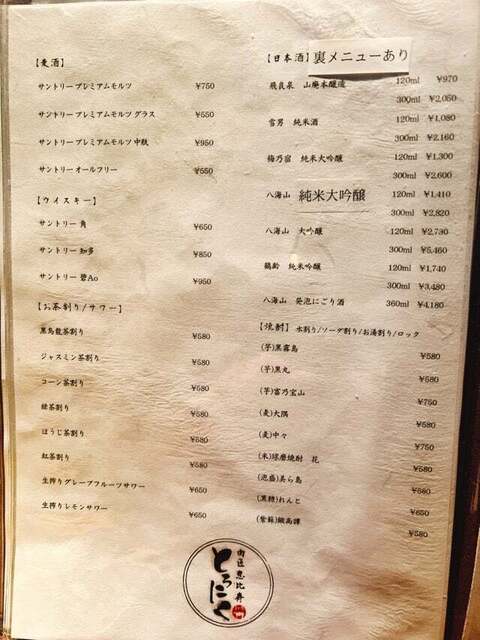 【麦酒】
サントリー プレミアムモルツ ¥750
サントリー プレミアムモルツ グラス ¥550
サントリー プレミアムモルツ 中瓶 ¥950
サントリー オールフリー ¥550
【ウイスキー】
サントリー 角 ¥650
サントリー 知多 ¥850
サントリー 碧Ao ¥950
【お茶割り/サワー】
黒烏龍茶割り ¥580
ジャスミン茶割り ¥580
コーン茶割り ¥580
緑茶割り ¥580
ほうじ茶割り ¥580
紅茶割り ¥580
生搾りグレープフルーツサワー ¥650
生搾りレモンサワー ¥650
【日本酒】裏メニューあり
飛良泉 山廃本醸造 120ml ¥970
300ml ¥2,050
雪男 純米酒 120ml ¥1,080
300ml ¥2,160
梅乃宿 純米大吟醸 120ml ¥1,300
300ml ¥2,600
八海山 純米大吟醸 120ml ¥1,410
300ml ¥2,820
八海山 大吟醸 120ml ¥2,730
300ml ¥5,460
鶴齢 純米吟醸 120ml ¥1,740
300ml ¥3,480
八海山 発泡にごり酒 360ml ¥4,180
【焼酎】水割り/ソーダ割り/お湯割り/ロック
(芋)黒霧島 ¥580
(芋)黒丸 ¥580
(芋)富乃宝山 ¥750
(麦)大隅 ¥580
(麦)中々 ¥750
(米)球磨焼酎 花 ¥580
(泡盛)美ら島 ¥580
(黒糖)れんと ¥650
(紫蘇)鍛高譚 ¥580
肉匠 恵比寿
とろにく